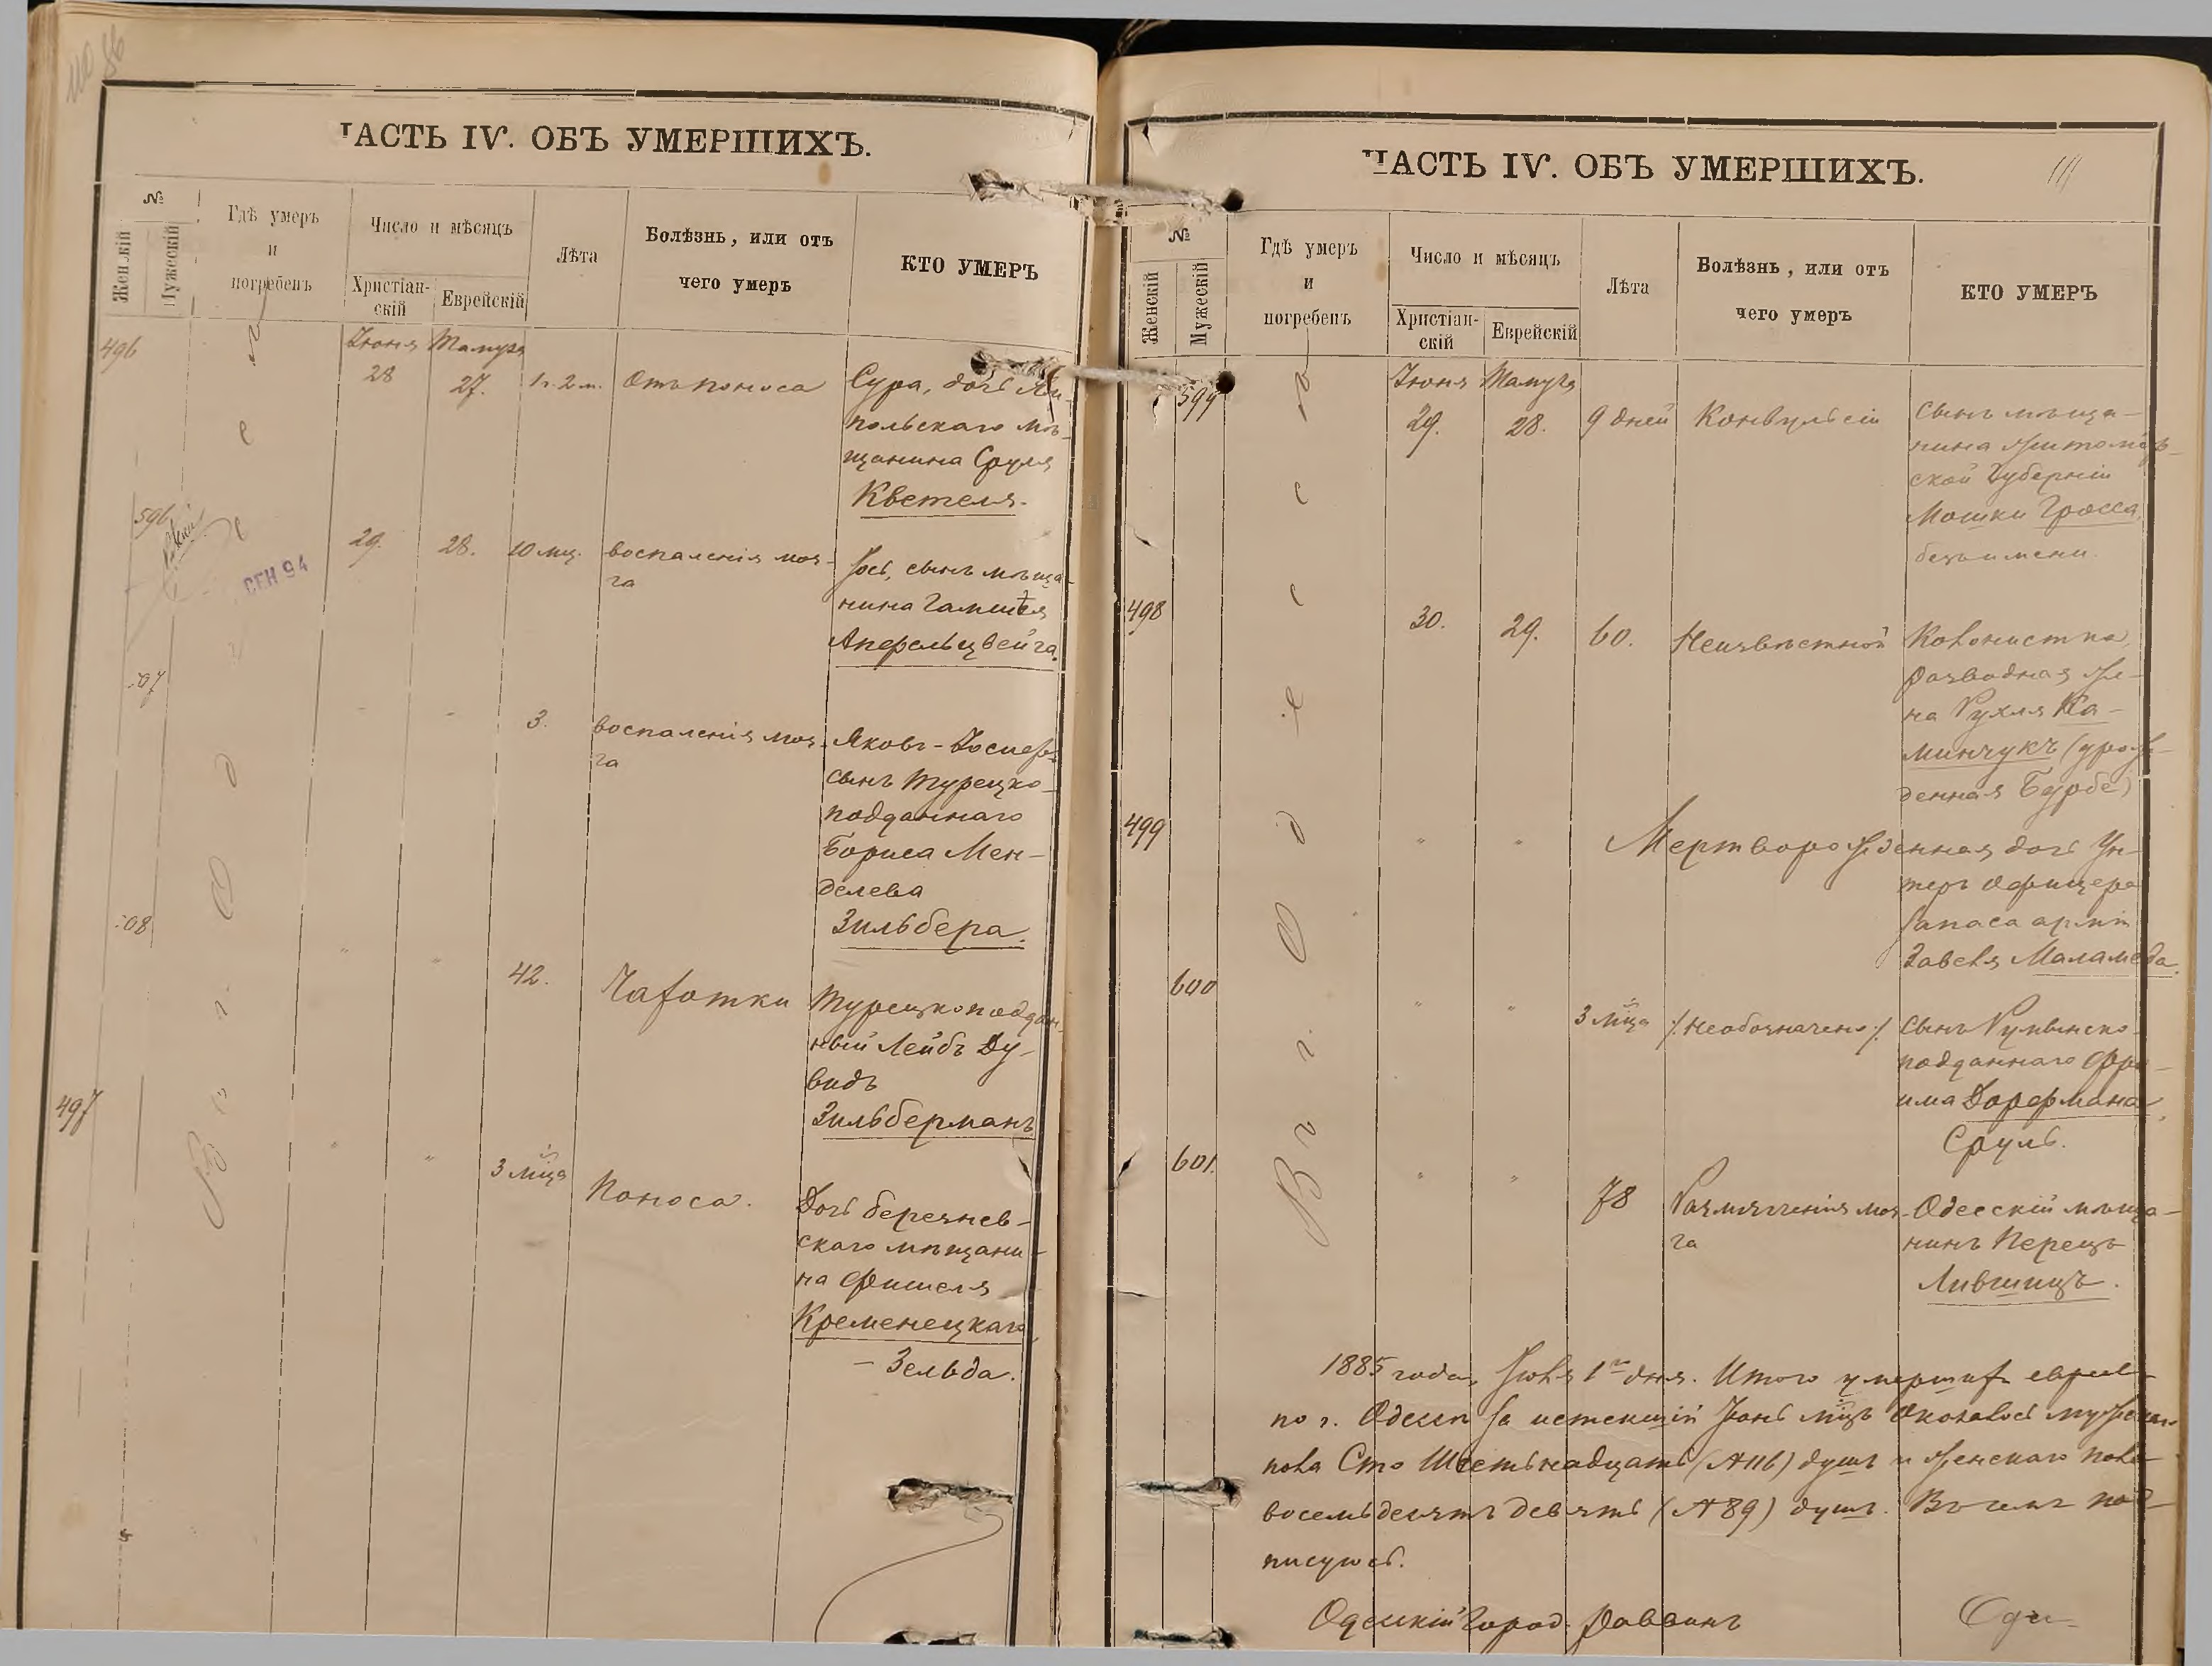 ЧАСТЬ IV. ОБЪ УМЕРШИХЪ.
№
Женскій
Мужескій
Гдѣ умеръ
и
погребенъ
Число и мѣсяцъ
Христіан-
скій
Еврейскій
Лѣта
Болѣзнь, или отъ
чего умеръ
КТО УМЕРЪ
Іюня Тамуза
496
28
27.
1 г. 2 м.
Отъ поноса
Сура, дочь
польскаго мѣ-
щанина Сруля
Кветеля.
596
СЕН 94
29.
28.
10 мц.
воспаленія моз-
га
Іось, сынъ мѣща-
нина
Аперельцвейга.
-07
3.
воспаленія моз-
га
Яковъ-Іосифъ
сынъ турецко-
подданнаго
Бориса Мен-
делева
Зильбера.
-08
42.
Чахотки
Турецкоподдан-
ный Лейбъ Ду-
видъ
Зильберманъ
497
3 мца
Поноса.
Дочь березнев-
скаго мѣщани-
на Фишеля
Кременецкаго
- Зельда.
Въ г. Одессѣ
ЧАСТЬ IV. ОБЪ УМЕРШИХЪ.
111
№
Женскій
Мужескій
Гдѣ умеръ
и
погребенъ
Число и мѣсяцъ
Христіан-
скій
Еврейскій
Лѣта
Болѣзнь, или отъ
чего умеръ
КТО УМЕРЪ
Іюня Тамуза
599
29.
28.
9 дней
Конвульсіи
Сынъ мѣща-
нина Житомір-
ской Губерніи
Мошки Гросса,
безъ имени.
498
30.
29.
60.
Неизвѣстной
Колонистка,
разводная же-
на Рухля Ка-
минчукъ (урож-
денная Бурбе)
499
" "
Мертворожденная дочь Ун-
теръ офицера
запаса арміи
Завеля Маламеда.
600
" "
3 мца
/. Необозначено ./
Сынъ Румынско-
подданнаго Фро-
има Дорфмана,
Сруль.
601.
" "
78
Размягченія моз-
га
Одесскій мѣща-
нинъ Перецъ
Лившицъ.
Въ г. Одессѣ
1885 года, Іюля 1го дня. Итого умершихъ евреевъ
по г. Одессѣ за истекшій Іюнь мцъ оказалось мужскаго
пола Сто Шестьнадцать (№116) душъ и женскаго пола
восемьдесятъ девять (№89) душъ. Въ чемъ под-
писуюсь.
Одесскій Город. Раввинъ